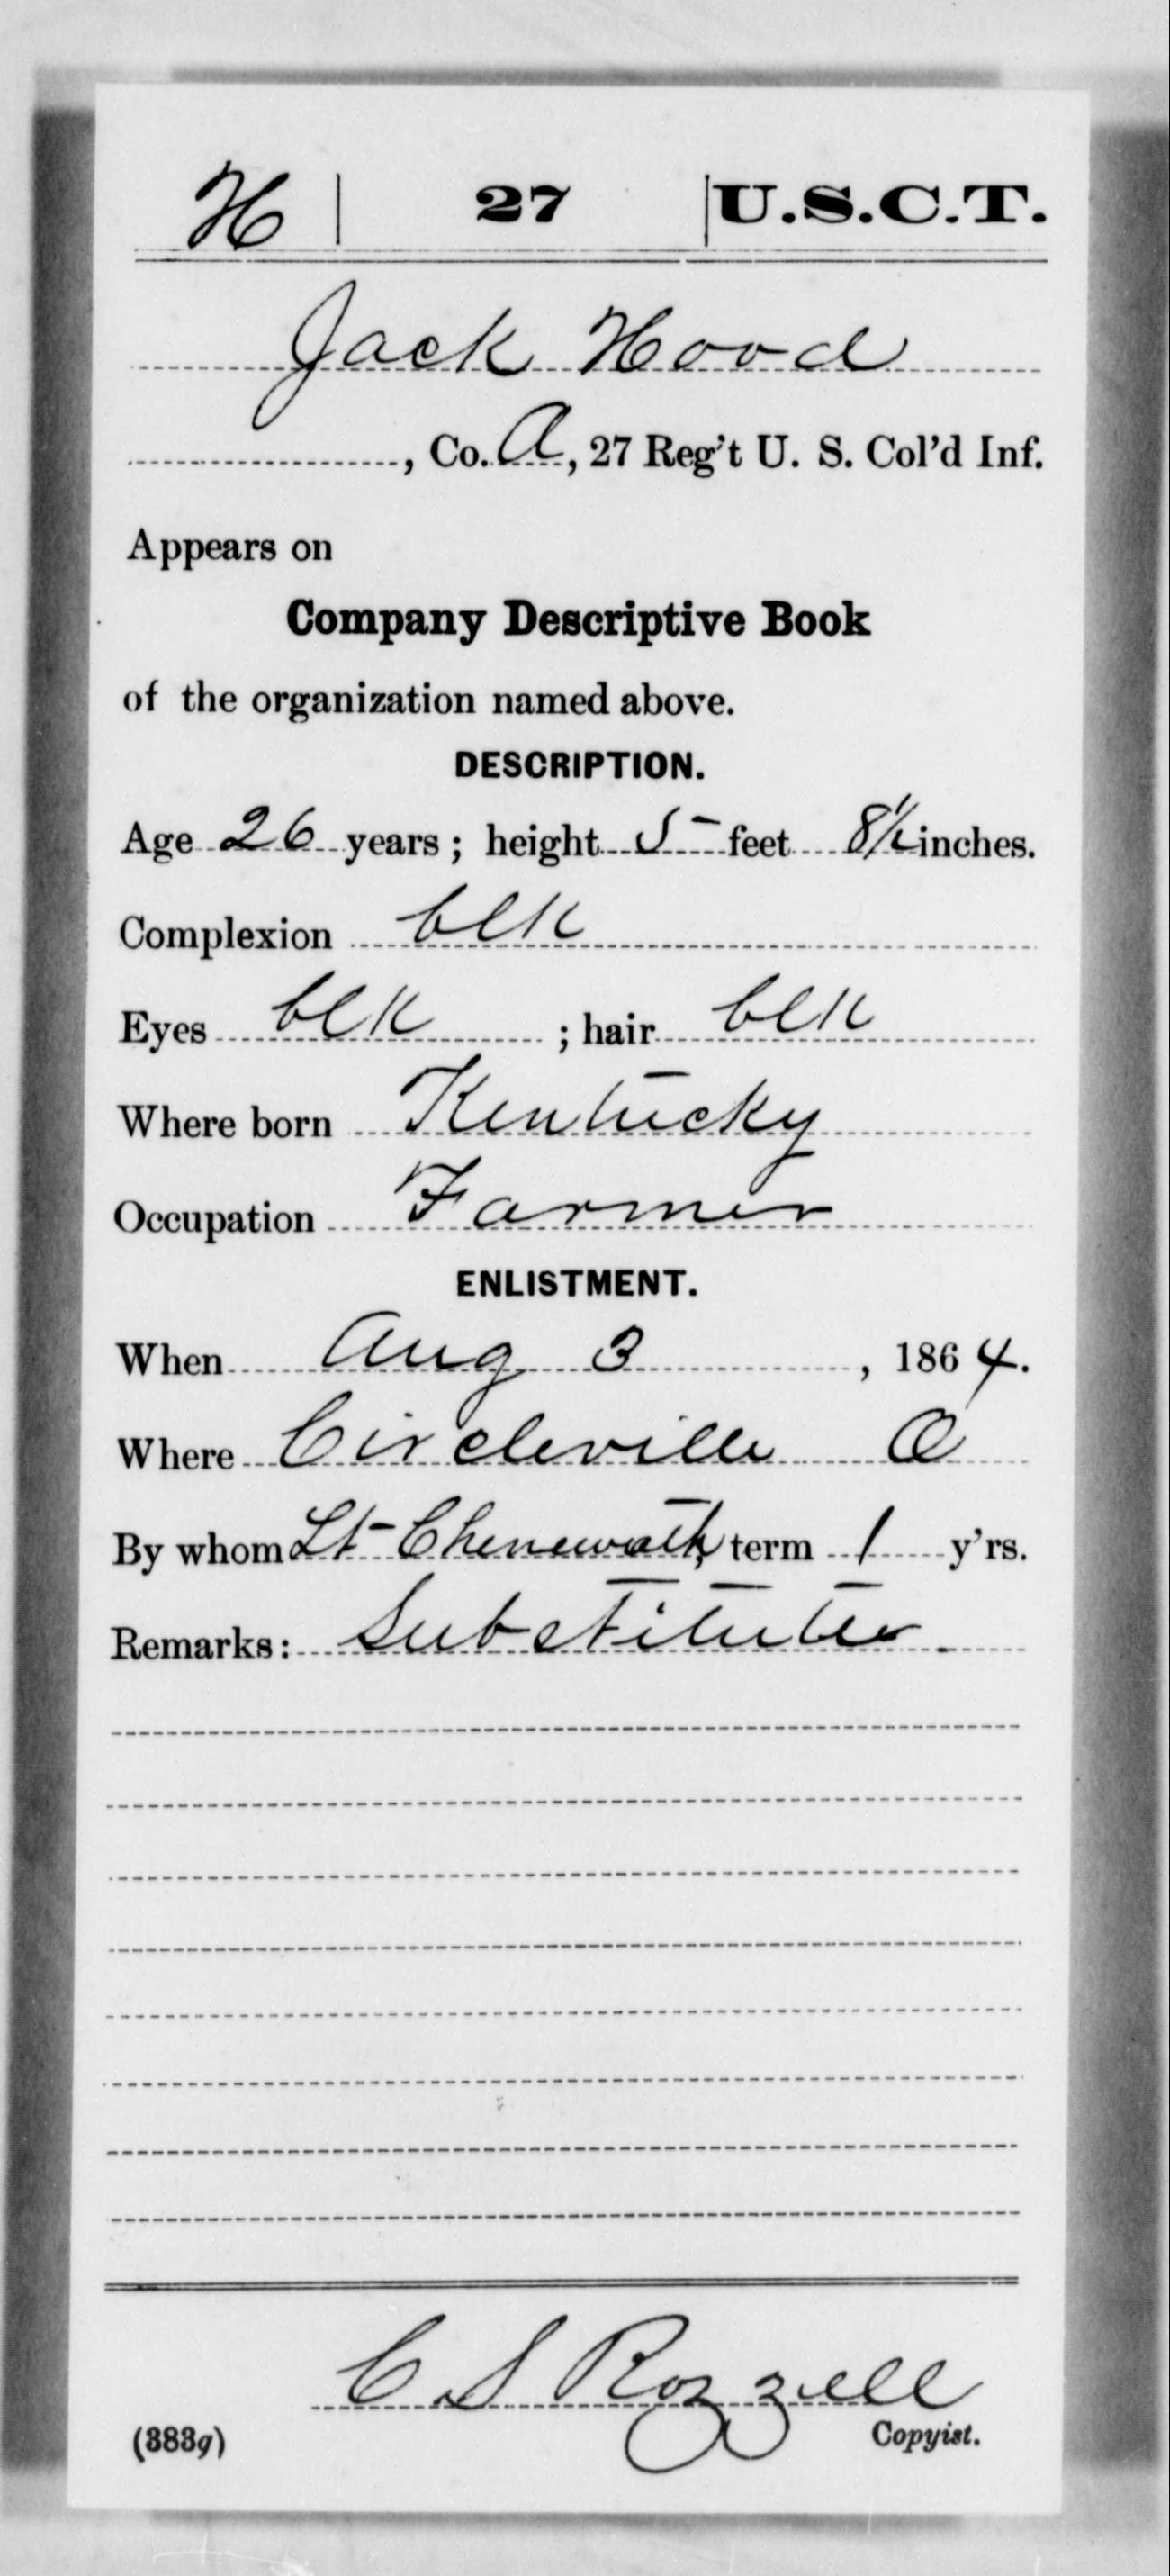 H | 27 | U.S.C.T.
Jack Hood
, Co. A, 27 Reg't U. S. Col'd Inf.
Appears on
Company Descriptive Book
of the organization named above.
DESCRIPTION.
Age 26 years; height 5 feet 8½ inches.
Complexion blk
Eyes blk ; hair blk
Where born Kentucky
Occupation Farmer
ENLISTMENT.
When Aug 3, 1864.
Where Circleville O
By whom Lt Chenewoth, term 1 y'rs.
Remarks: Substitute.
C S Rozzell
(383g) Copyist.